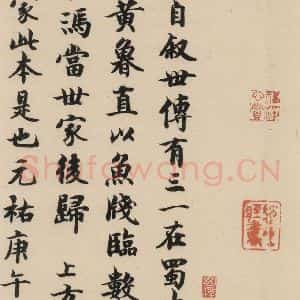 自叙世傳有三一在蜀
黄魯直以魚牋臨數
馮當世家後歸上方
家此本是也元祐庚午
Shufawang.CN